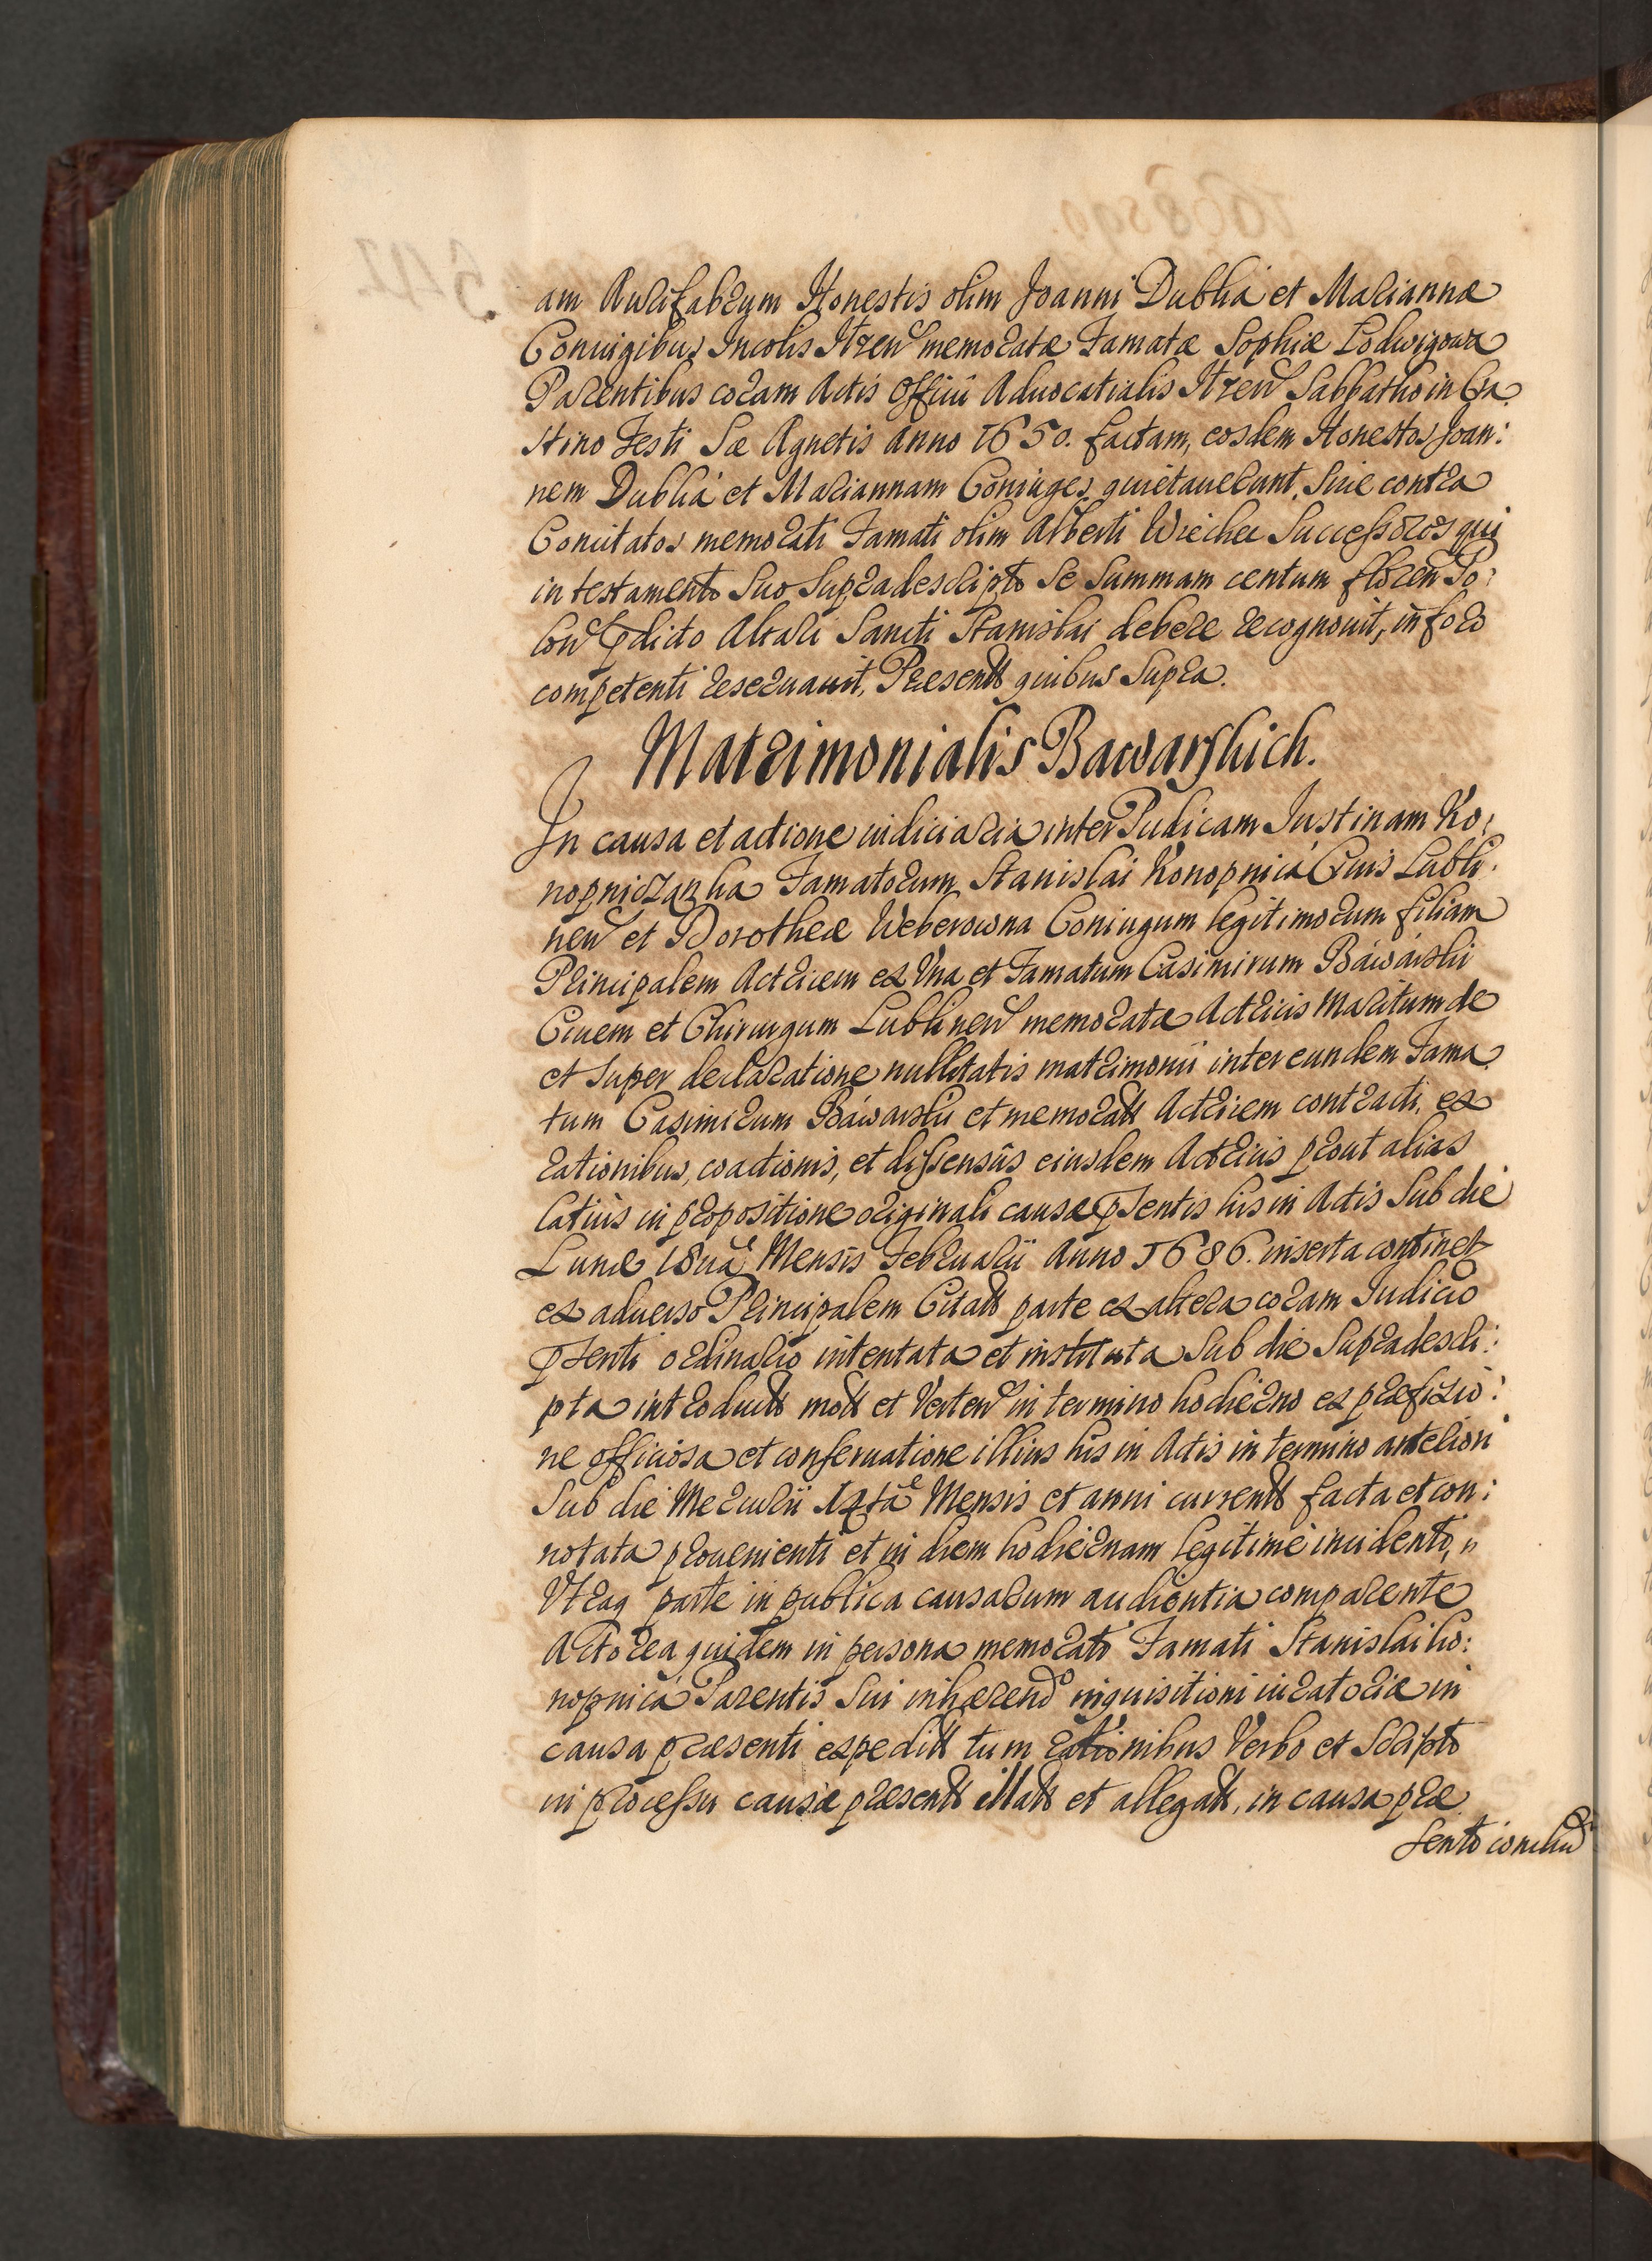 am Aurifabrum Honestis olim Joanni Dubla et Mariannæ
Coniugibus Incolis Itzen memoratæ Famatæ Sophiæ Lodwigowa
Parentibus coram Actis Officii Aduocatialis Itzen Sabbatho in Cra
stino Festi Sæ Agnetis Anno 1650. factam, eosdem Honestos Joan:
nem Dubla et Mariannam Coniuges quietauerunt, Siue contra
Conuitatos memorati Famati olim Alberti Wiecher Successores qui
in testamento Suo Supradescripto Se Summam centum floren Po:
lon pdicto Altari Sancti Stanislai debere recognouit, in foro
competenti reseruauit, Præsentt quibus Supra.
Matrimonialis Bawarskich.
In causa et actione iudiciaria inter Pudicam Justinam Ko:
nopniczanka Famatorum Stanislai Konopnica Ciuis Lubli:
nen et Dorotheæ Weberowna Coniugum legitimorum filiam
Principalem Actricem ex Vna et Famatum Casimirum Báwárski
Ciuem et Chirurgum Lublinen memoratæ Actricis Maritum de
et Super declaratione nullitatis matrimonii inter eundem Fama
tum Casimirum Báwarski et memoratt Actricem contracti, ex
rationibus, coactionis, et dissensûs eiusdem Actricis prout alias
latius in propositione originali causæ psentis his in Actis Sub die
Lunæ 18ua Mensis Februarii Anno 1686. inserta continet
ex aduerso Principalem Citatt parte ex altera coram Judicio
psenti ordinario intentata et instituta Sub die Supradescri:
pta introductt mott et Verten in termino hodierno ex præfixio:
ne officiosa et conseruatione illius his in Actis in termino anteriori
Sub die Mercurii Mensis et anni currentt facta et con:
notata proueniente et in diem hodiernam legitime incidente,
Vtraq parte in publica causarum audientia comparente
Actorea quidem in persona memorati Famati Stanislai Ko:
nopnica Parentis Sui inhærend inquisitioni iuratoriæ in
causa præsenti expeditt tum rationibus Verbo et Scripto
in processu causæ præsentt illatt et allegatt, in causa præ
sentt conclud